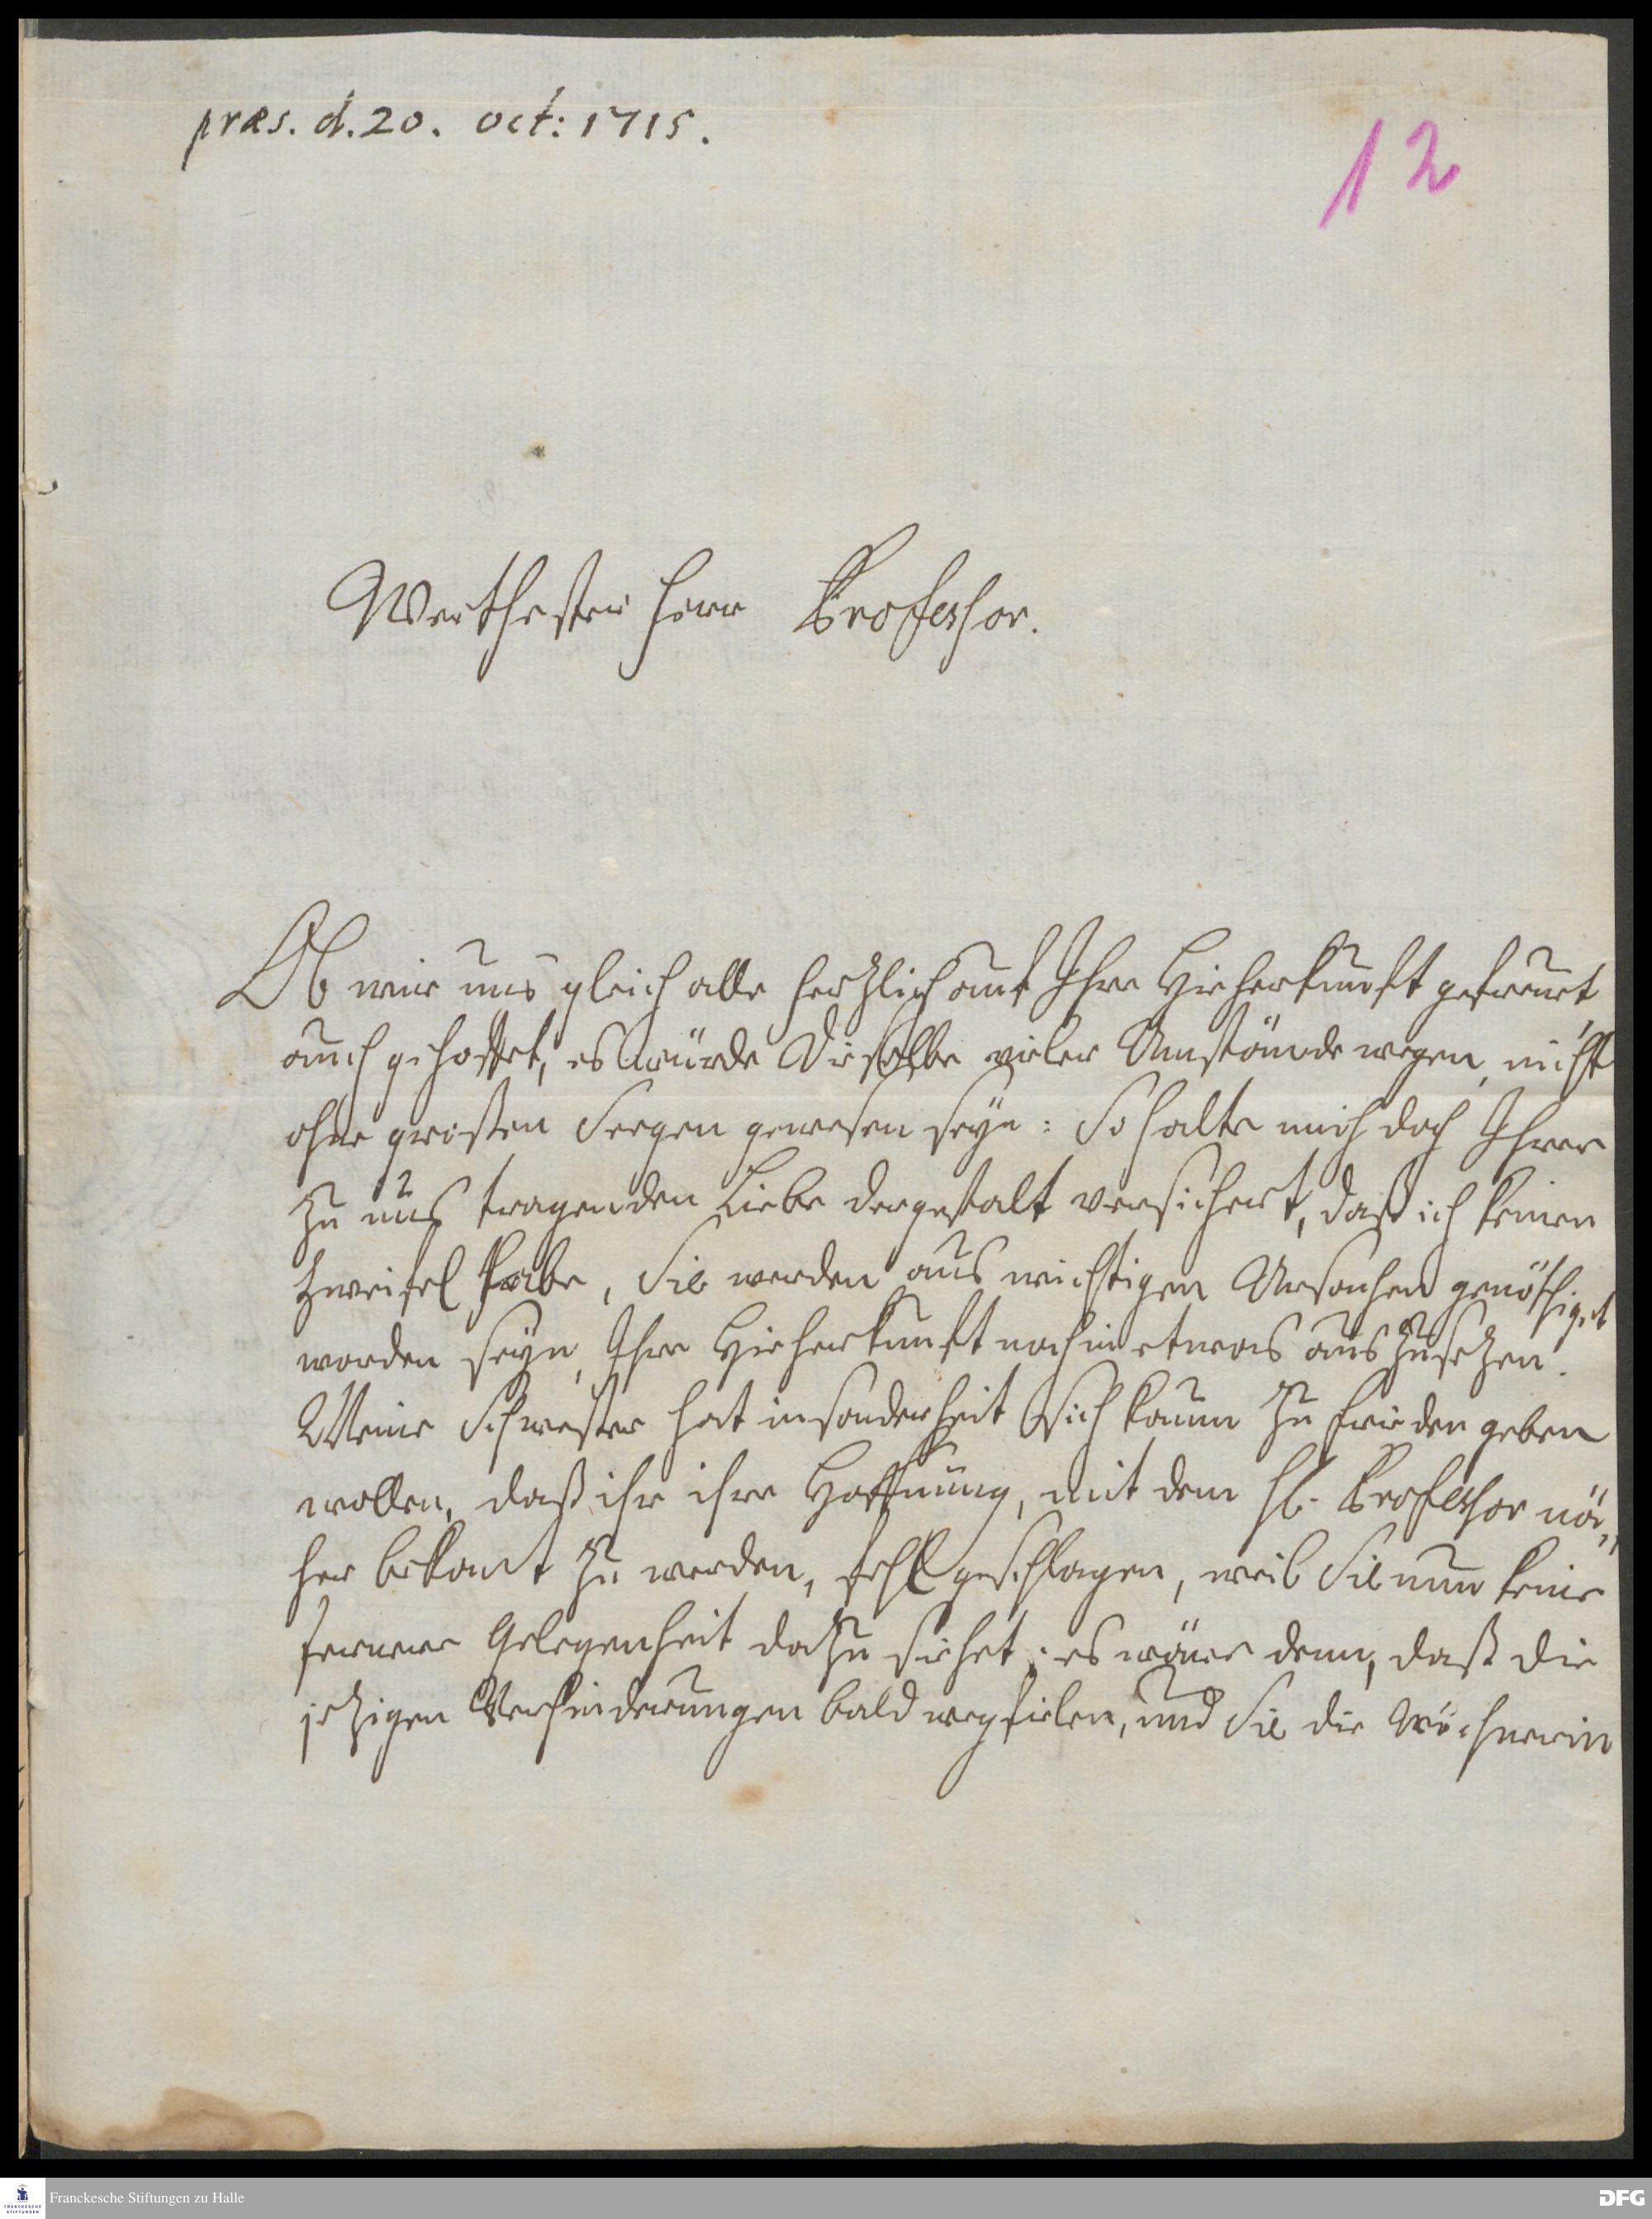 præs. d. 20. Oct: 1715.
12
Werthester Herr Professor.
Ob wir uns gleich alle hertzlich auf Ihre Hieherkunft gefreuet
auch gehoffet, es würde Dieselbe vieler Umstände wegen, nicht
ohne großen Seegen gewesen seyn: So halte mich doch Ihrer
zu uns tragenden Liebe dergestalt versichert, daß ich keinen
Zweifel habe, Sie werden aus wichtigen Ursachen genöthiget
worden seyn, Ihre Hieherkunft noch in etwas auszusetzen.
Meine Schwester hat insonderheit sich kaum zu frieden geben
wollen, daß ihr ihre Hoffnung, mit dem H. Professor nä,,
her bekant zu werden, fehl geschlagen, weil Sie nun keine
fernere Gelegenheit dazu siehet; es wäre denn, daß die
jetzigen Verhinderungen bald wegfielen, und Sie die Wöchnerin
Franckesche Stiftungen zu Halle
DFG